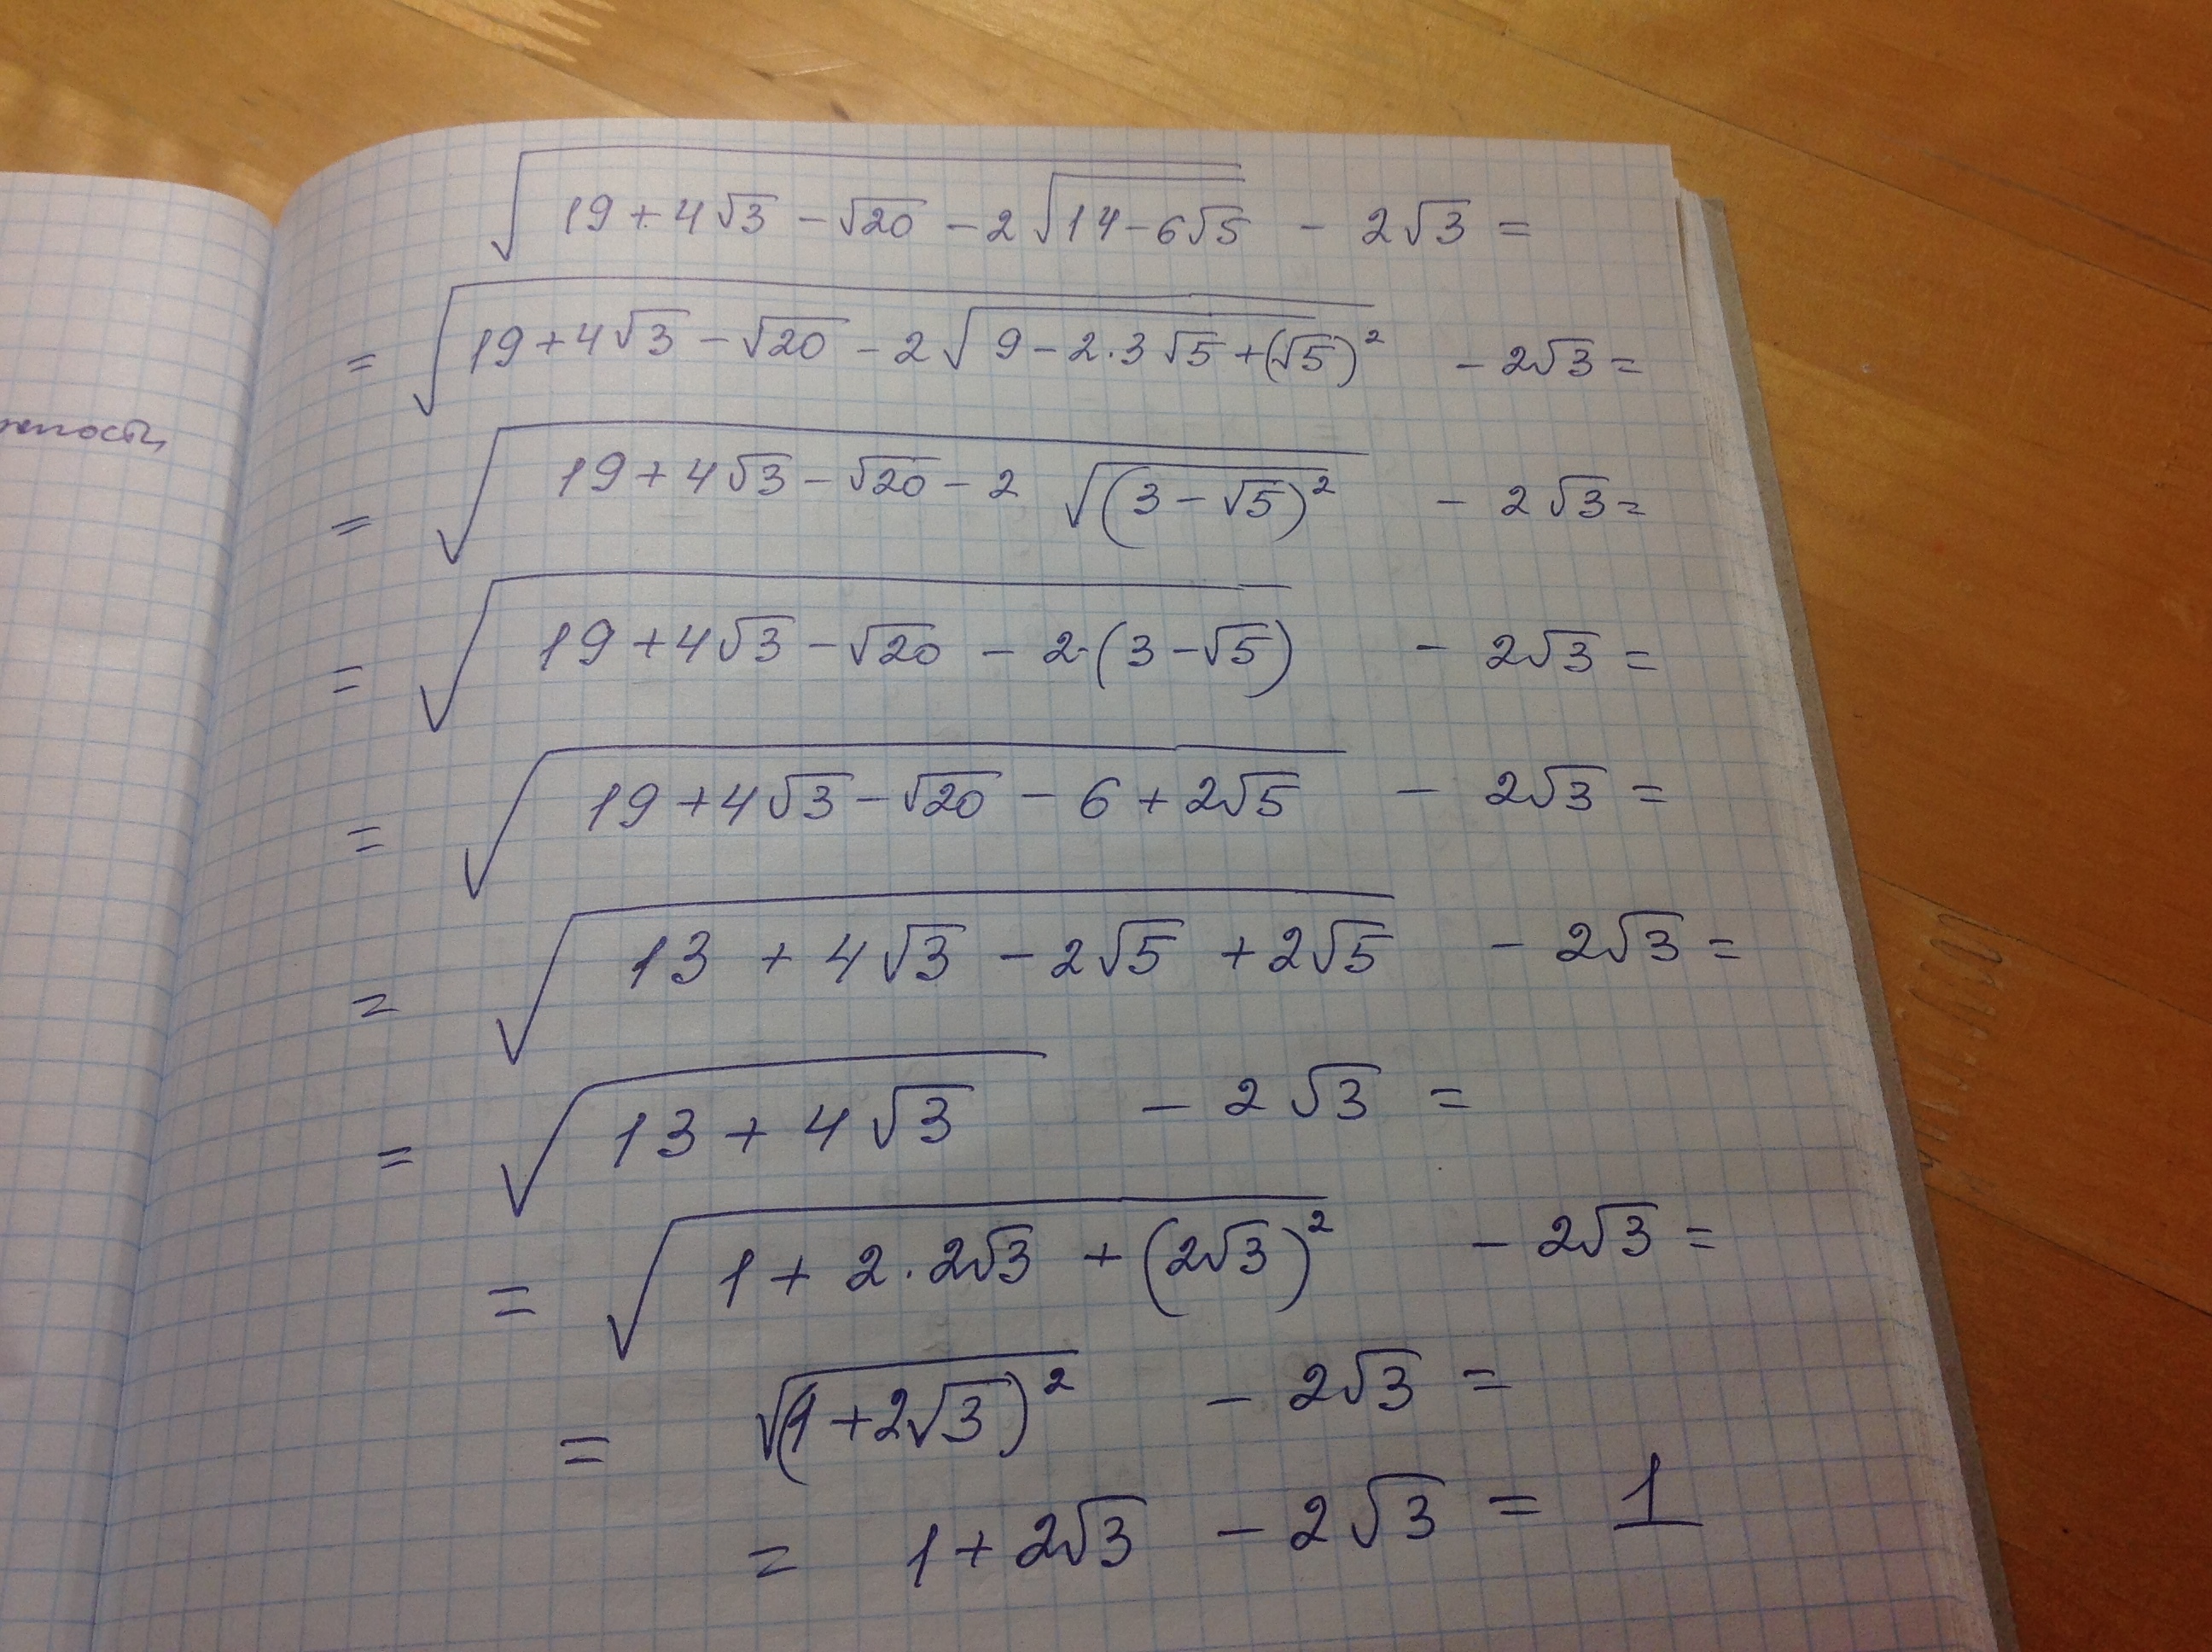 √(19 + 4√3 − √20 − 2√(14 − 6√5)) − 2√3 =
= √(19 + 4√3 − √20 − 2√(9 − 2·3√5 + (√5)²)) − 2√3 =
= √(19 + 4√3 − √20 − 2√((3 − √5)²)) − 2√3 =
= √(19 + 4√3 − √20 − 2·(3 − √5)) − 2√3 =
= √(19 + 4√3 − √20 − 6 + 2√5) − 2√3 =
= √(13 + 4√3 − 2√5 + 2√5) − 2√3 =
= √(13 + 4√3) − 2√3 =
= √(1 + 2·2√3 + (2√3)²) − 2√3 =
= √((1 + 2√3)²) − 2√3 =
= 1 + 2√3 − 2√3 = 1